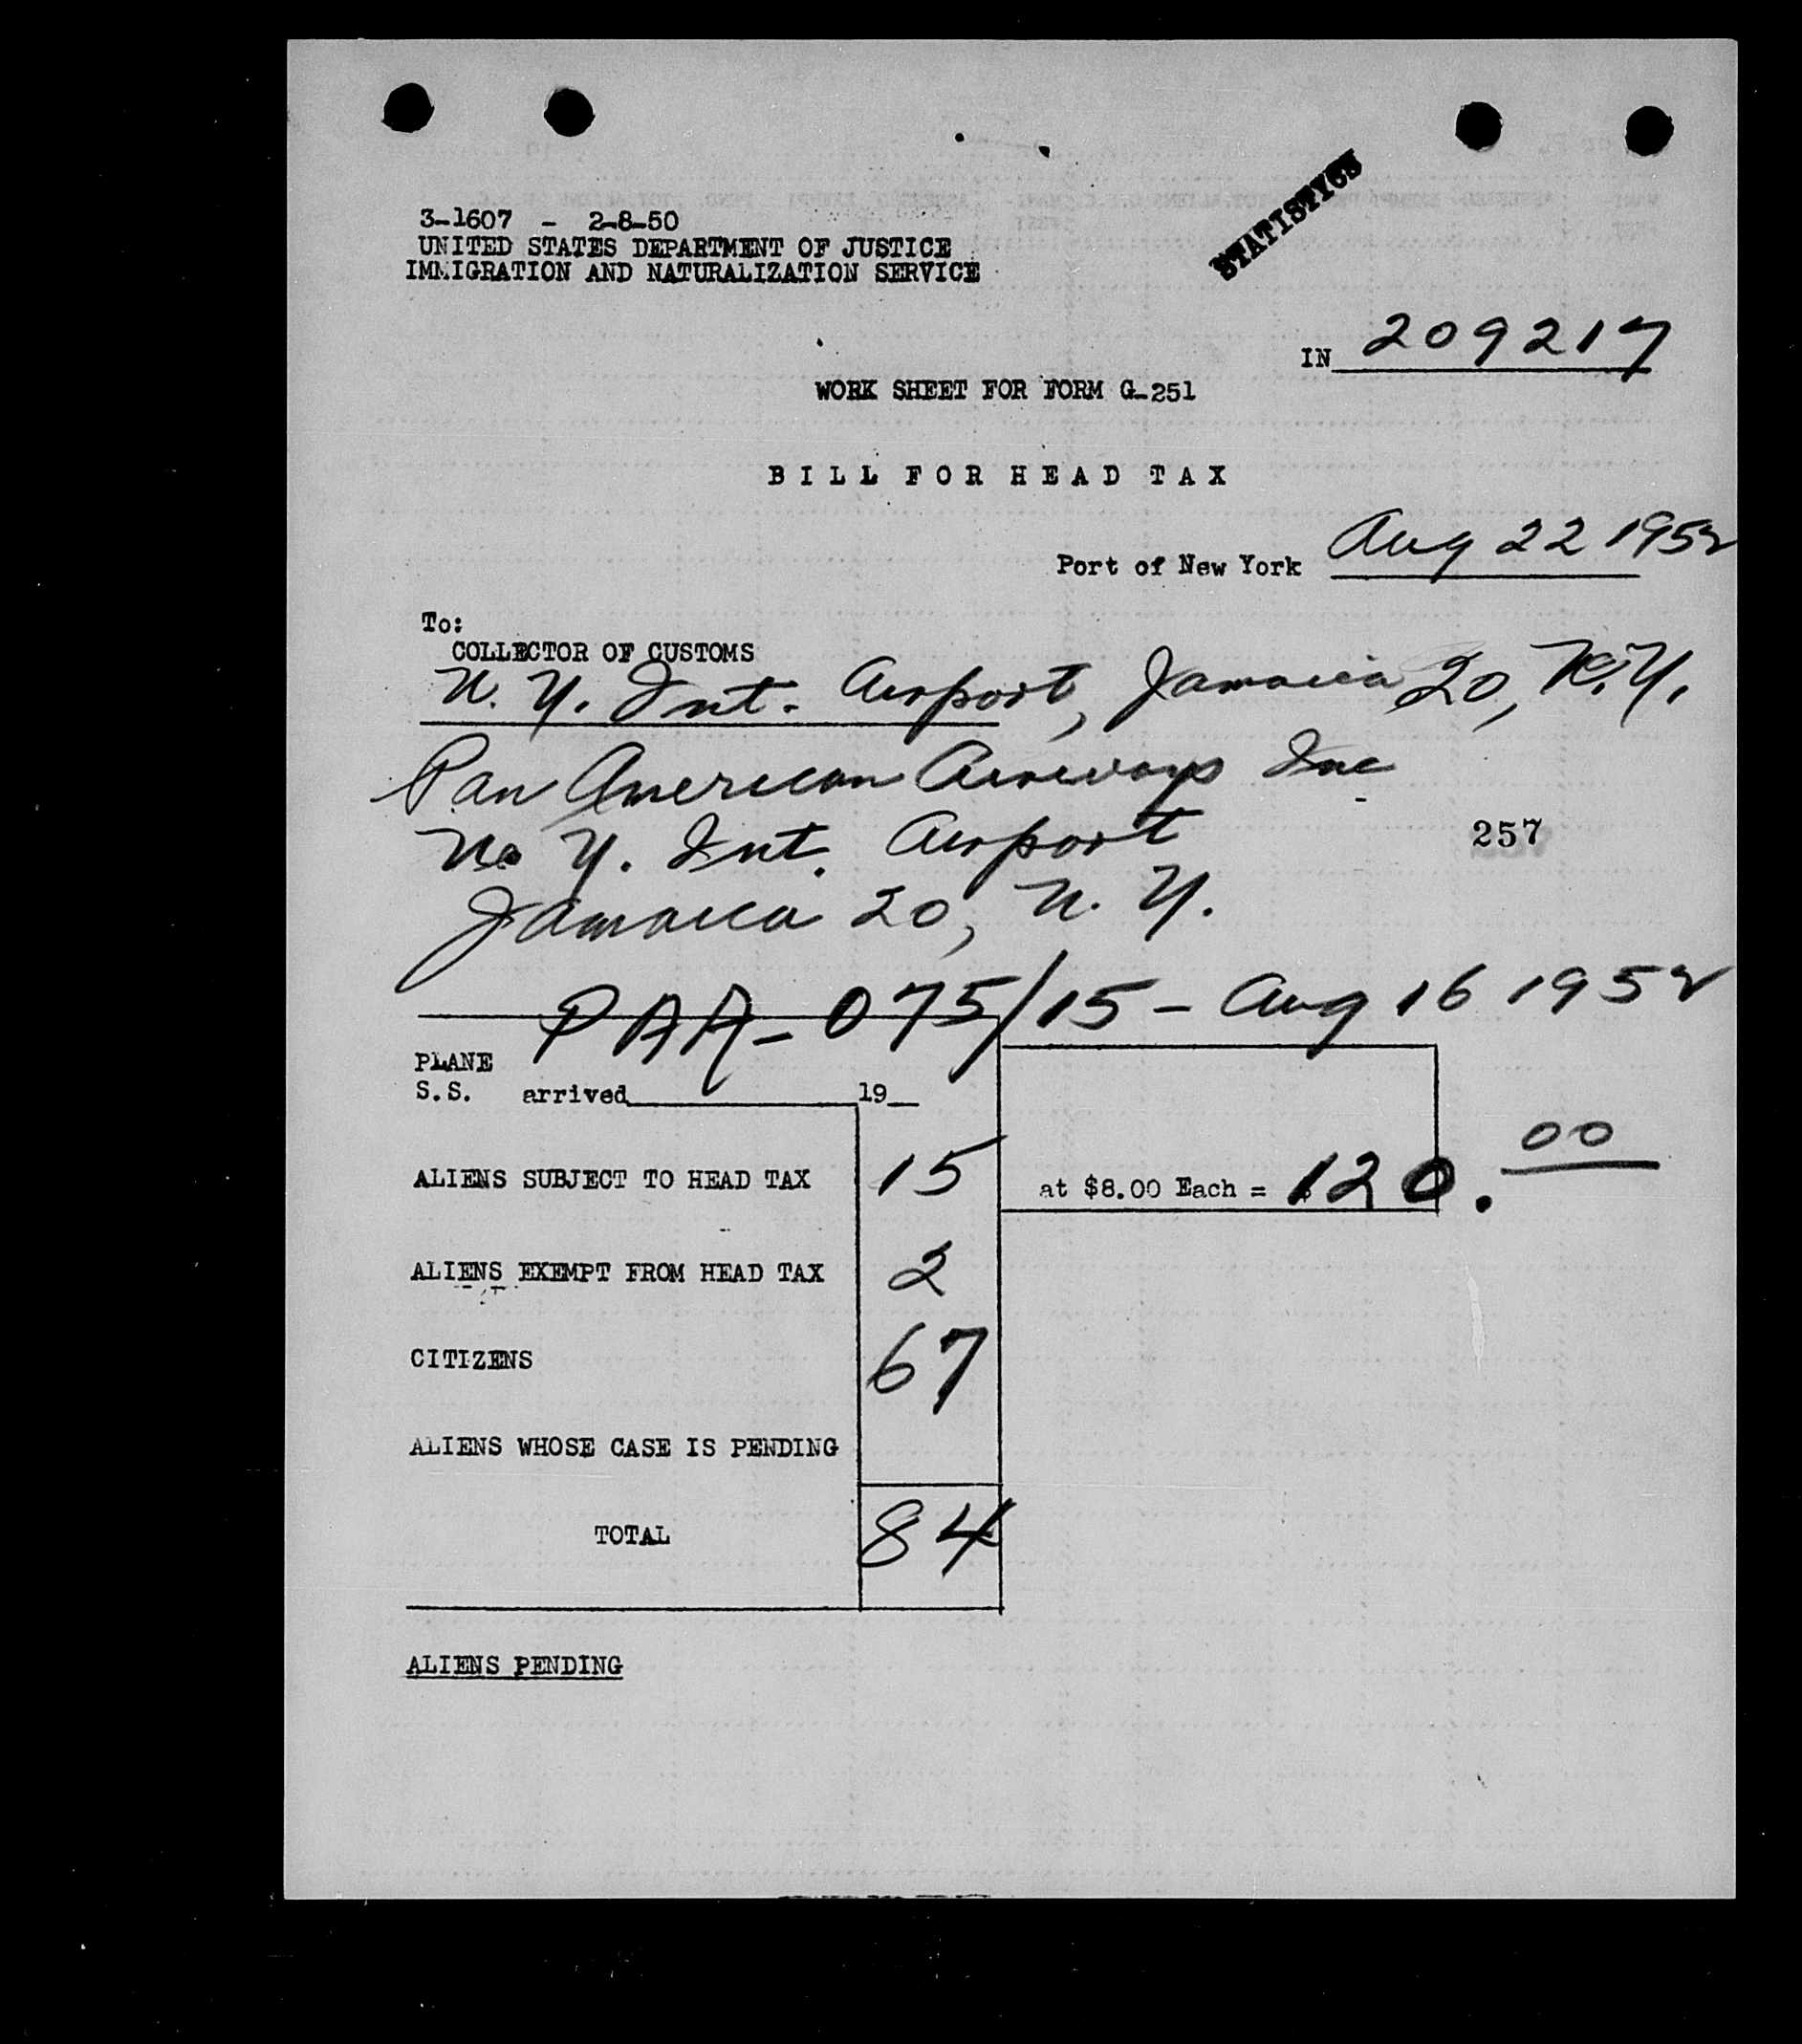 STATISTICS
3-1607 - 2-8-50
UNITED STATES DEPARTMENT OF JUSTICE
IMMIGRATION AND NATURALIZATION SERVICE
IN 209217
WORK SHEET FOR FORM G-251
BILL FOR HEAD TAX
Port of New York Aug 22 1952
To:
COLLECTOR OF CUSTOMS
N. Y. Int. Airport, Jamaica 20, N.Y.
Pan American Airways Inc
N. Y. Int. Airport
257
Jamaica 20, N. Y.
PAA-075/15 - Aug 16 1952
PLANE
S.S. arrived 19
ALIENS SUBJECT TO HEAD TAX 15 at $8.00 Each = $120.00
ALIENS EXEMPT FROM HEAD TAX 2
CITIZENS 67
ALIENS WHOSE CASE IS PENDING
TOTAL 84
ALIENS PENDING